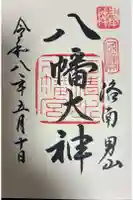 洛南男山
八幡大神
令和八年五月十日